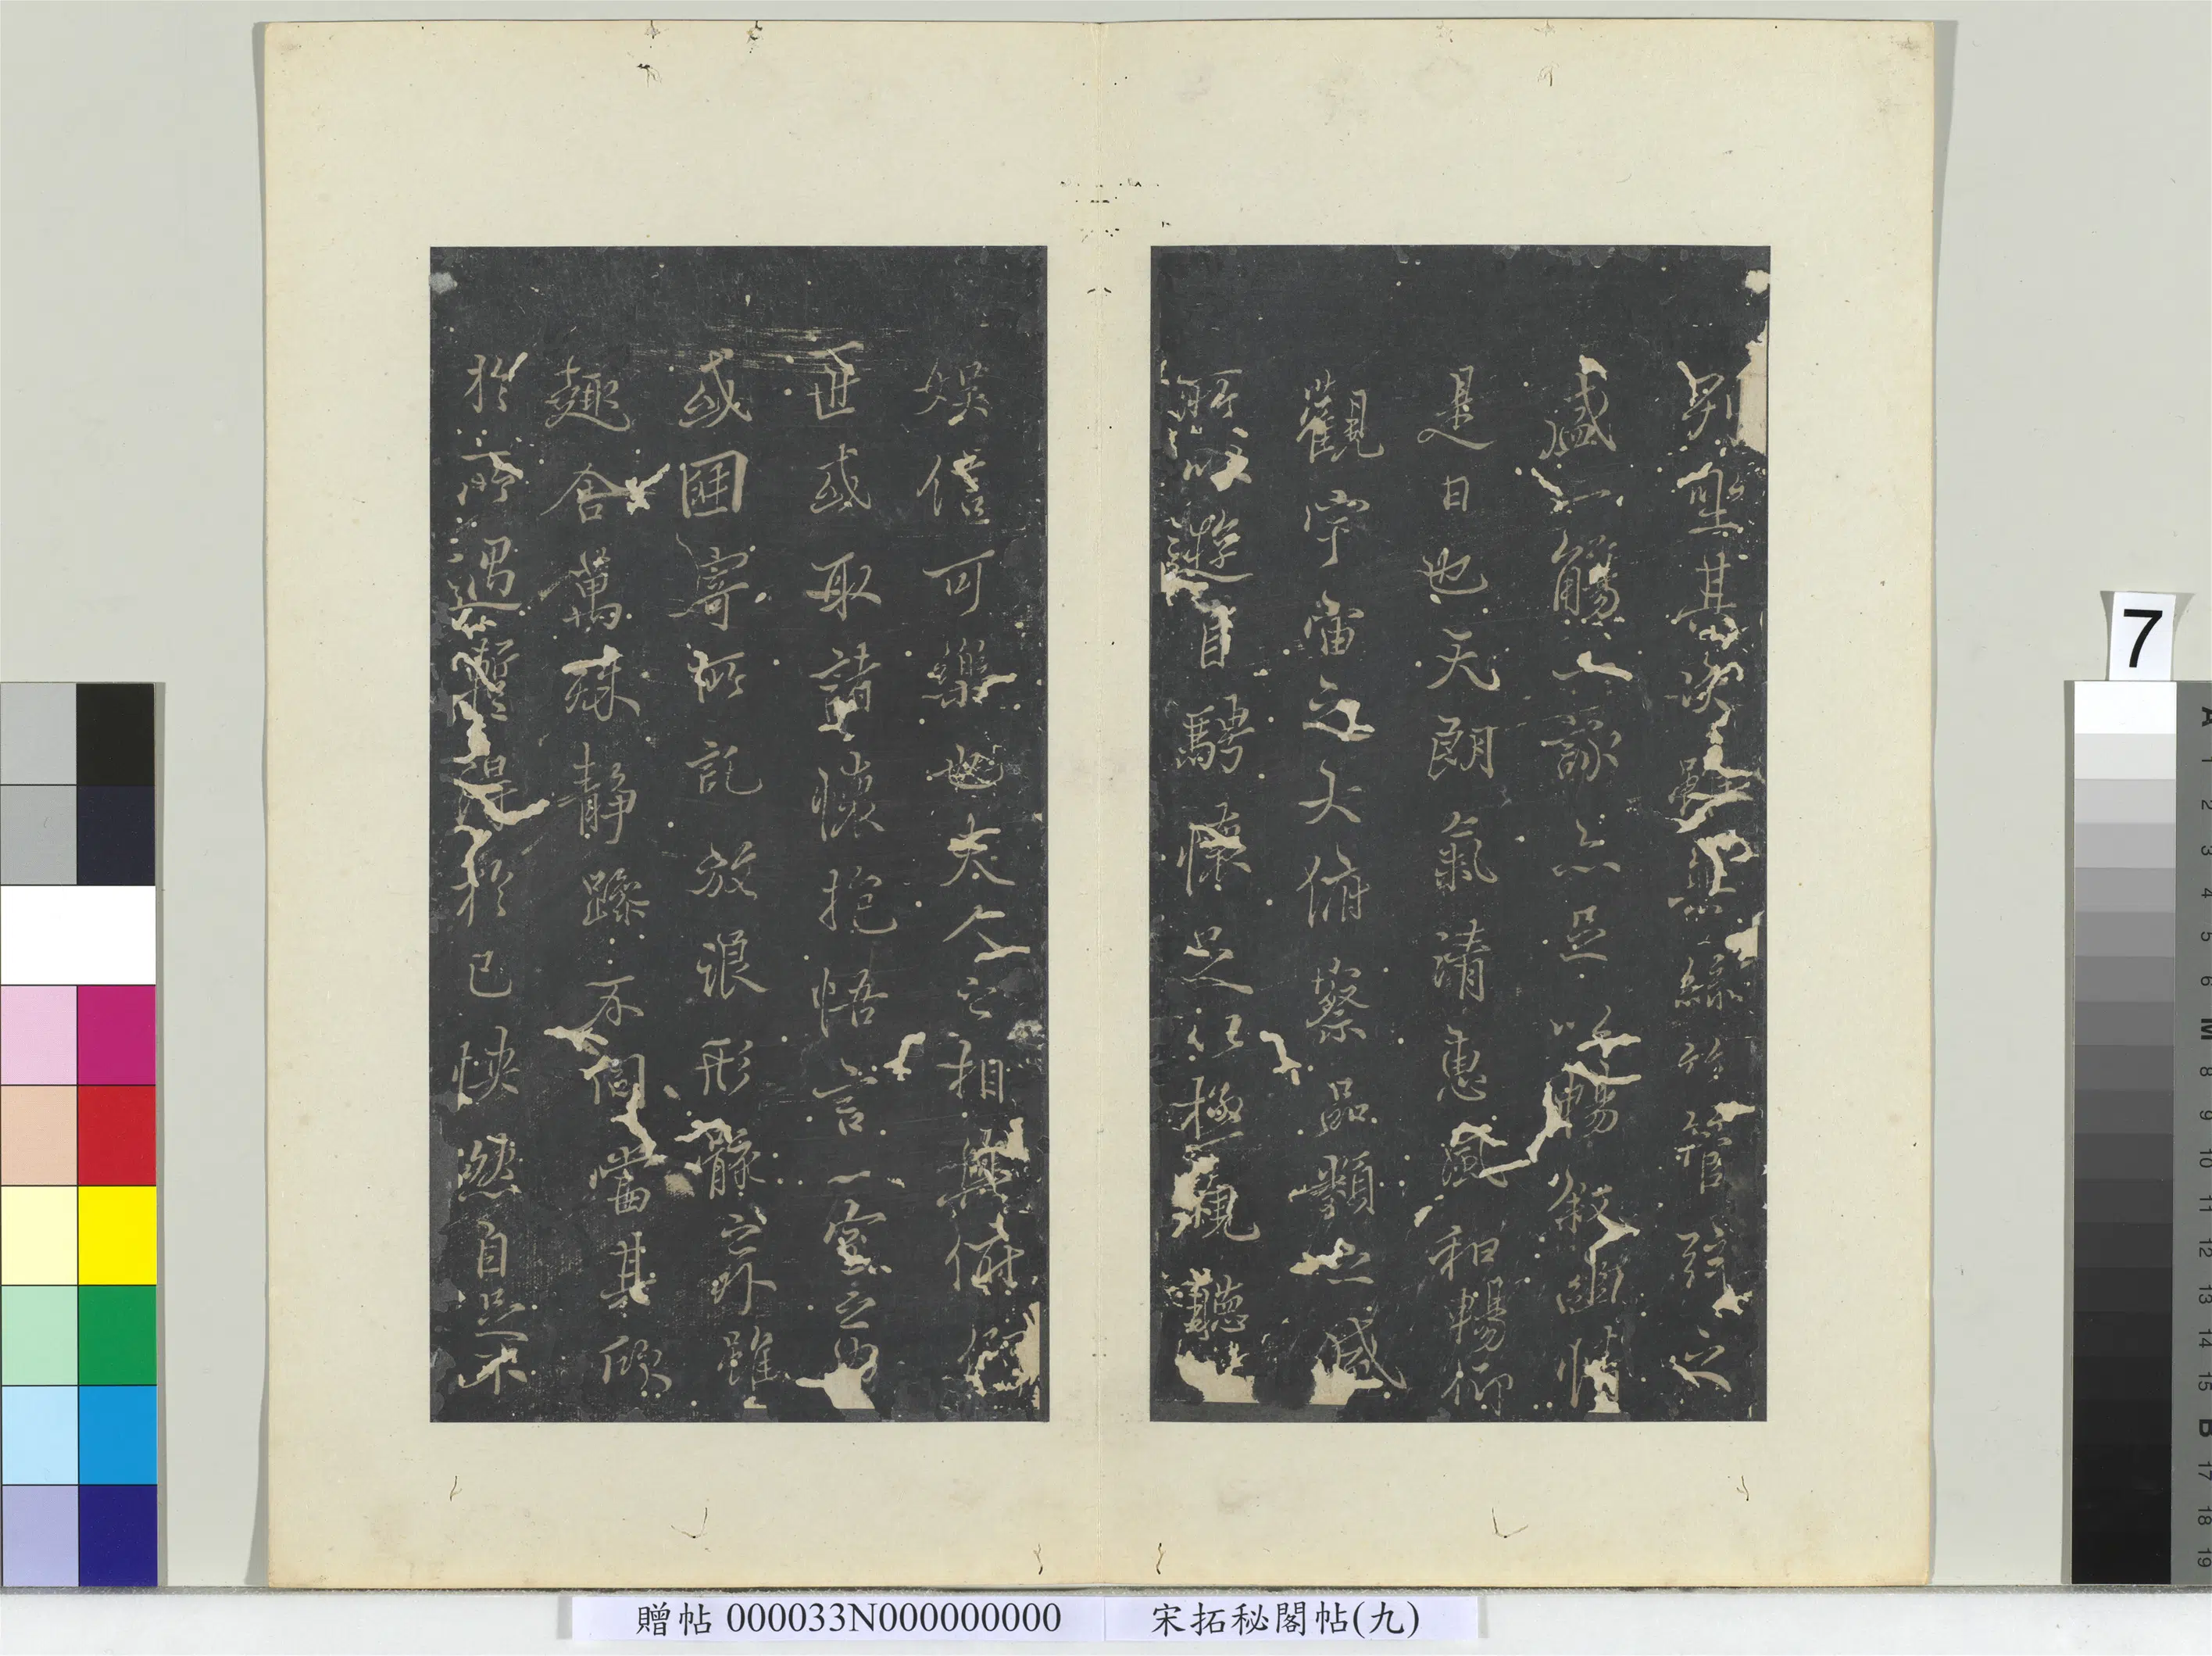 列坐其次雖無絲竹管弦之
盛一觴一詠亦足以暢敘幽情
是日也天朗氣清惠風和暢仰
觀宇宙之大俯察品類之盛
所以遊目騁懷足以極視聽之
娛信可樂也夫人之相與俯仰
一世或取諸懷抱悟言一室之內
或因寄所託放浪形骸之外雖
趣舍萬殊靜躁不同當其欣
於所遇暫得於己怏然自足不
贈帖 000033N000000000
宋拓秘閣帖(九)
7
A 1 2 3 4 5 6 M 8 9 10 11 12 13 14 15 B 17 18 19